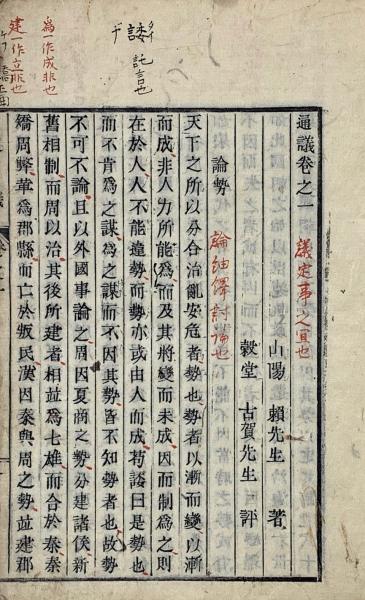 通議卷之一
議定事之宜也
山陽 賴先生 著
穀堂 古賀先生 評
論勢
論紬繹討論也
天下之所以分合治亂安危者勢也勢者以漸而變以漸
而成非人力所能爲而及其將變而未成因而制爲之則
在於人人不能違勢而勢亦或由人而成苟諉曰是勢也
而不肯爲之謀爲之謀而不因其勢皆不知勢者也故勢
不可不論且以外國事論之周因夏商之勢分建諸侯新
舊相制而周以治其後所建者相竝爲七雄而合於秦秦
矯周弊革爲郡縣而亡於叛民漢因秦與周之勢竝建郡
諉 託言也
爲一作成非也
建一作立非也